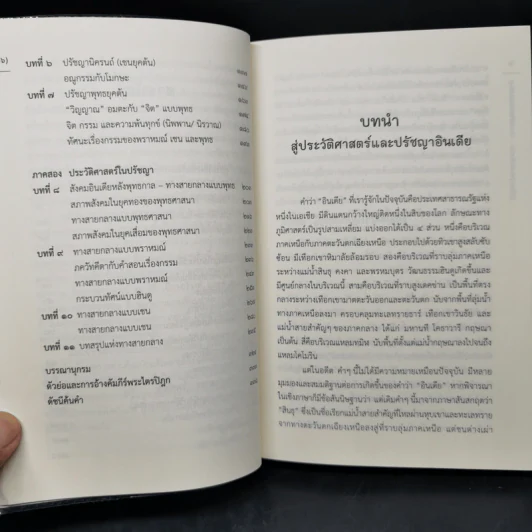 ๖)
บทที่ ๖ ปรัชญานิครนถ์ (เชนยุคต้น)
อณูกรรมกับโมกษะ
บทที่ ๗ ปรัชญาพุทธยุคต้น
"วิญญาณ" อมตะกับ "จิต" แบบพุทธ
จิต กรรม และความพ้นทุกข์ (นิพพาน/ นิรวาณ)
ทัศนะเรื่องกรรมของพราหมณ์ เชน และพุทธ
ภาคสอง ประวัติศาสตร์ในปรัชญา
บทที่ ๘ สังคมอินเดียหลังพุทธกาล – ทางสายกลางแบบพุทธ
สภาพสังคมในยุคทองของพุทธศาสนา
ทางสายกลางแบบพุทธศาสนา
สภาพสังคมในยุคเสื่อมของพุทธศาสนา
บทที่ ๙ ทางสายกลางแบบพราหมณ์
ภควัทคีตากับคำสอนเรื่องกรรม
ทางสายกลางแบบพราหมณ์
กระบวนทัศน์แบบฮินดู
บทที่ ๑๐ ทางสายกลางแบบเชน
ทางสายกลางแบบเชน
บทที่ ๑๑ บทสรุปแห่งทางสายกลาง
บรรณานุกรม
ตัวย่อและการอ้างคัมภีร์พระไตรปิฎก
ดัชนีค้นคำ
บทนำ
สู่ประวัติศาสตร์และปรัชญาอินเดีย
คำว่า "อินเดีย" ที่เรารู้จักในปัจจุบันคือประเทศสาธารณรัฐแห่ง
หนึ่งในเอเชีย มีดินแดนกว้างใหญ่ติดหนึ่งในสิบของโลก ลักษณะทาง
ภูมิศาสตร์เป็นรูปสามเหลี่ยม แบ่งออกได้เป็น ๔ ส่วน หนึ่งคือบริเวณ
ภาคเหนือกับภาคตะวันตกเฉียงเหนือ ประกอบไปด้วยทิวเขาสูงสลับซับ
ซ้อน มีเทือกเขาหิมาลัยล้อมรอบ สองคือบริเวณที่ราบลุ่มภาคเหนือ
ระหว่างแม่น้ำสินธุ คงคา และพรหมบุตร วัฒนธรรมฮินดูเกิดขึ้นและ
มีศูนย์กลางในบริเวณนี้ สามคือบริเวณที่ราบสูงเดคข่าน เป็นพื้นที่ตรง
กลางระหว่างเทือกเขาฆาตตะวันออกและตะวันตก นับจากพื้นที่ลุ่มน้ำ
ทางภาคเหนือลงมา ครอบคลุมทะเลทรายธาร์ เทือกเขาวินธัย และ
แม่น้ำสายสำคัญๆ ของภาคกลาง ได้แก่ มหานที โคธาวารี กฤษณา
เป็นต้น สี่คือบริเวณแหลมทมิฬ นับพื้นที่ตั้งแต่แม่น้ำกฤษณาลงไปจนถึง
แหลมโคโมริน
แต่ในอดีต คำๆ นี้ไม่ได้มีความหมายเหมือนปัจจุบัน มีหลาย
มุมมองและสมมติฐานต่อการเกิดขึ้นของคำว่า "อินเดีย" หากพิจารณา
ในเชิงภาษาก็มีข้อสันนิษฐานว่า แต่เดิมคำๆ นี้มาจากภาษาสันสกฤตว่า
"สินธุ" ซึ่งเป็นชื่อเรียกแม่น้ำสายสำคัญที่ไหลผ่านหุบเขาและทะเลทราย
จากทางตะวันตกเฉียงเหนือลงสู่ที่ราบลุ่มภาคเหนือ แต่ชนต่างเผ่า